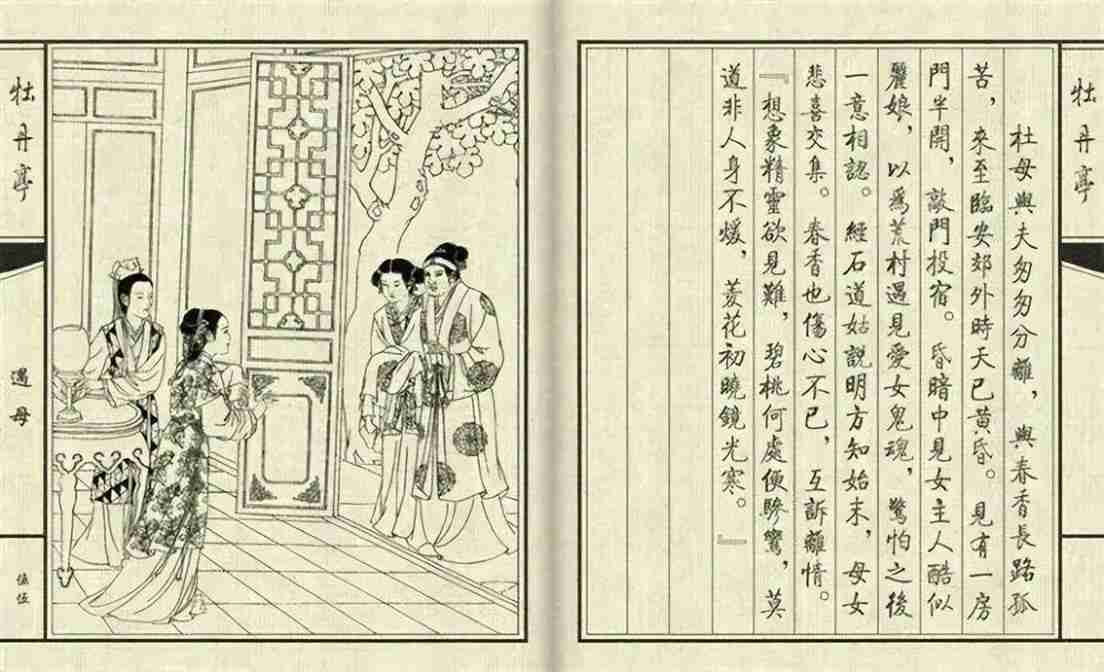 牡丹亭
杜母與夫匆匆分離，與春香長路孤
苦，來至臨安郊外時天已黃昏。見有一房
門半開，敲門投宿。昏暗中見女主人酷似
麗娘，以爲荒村遇見愛女鬼魂，驚怕之後
一意相認。經石道姑説明方知始末，母女
悲喜交集。春香也傷心不已，互訴離情。
『想象精靈欲見難，碧桃何處便驂鸞，莫
道非人身不煖，菱花初曉鏡光寒。』
牡丹亭
遇母
伍伍